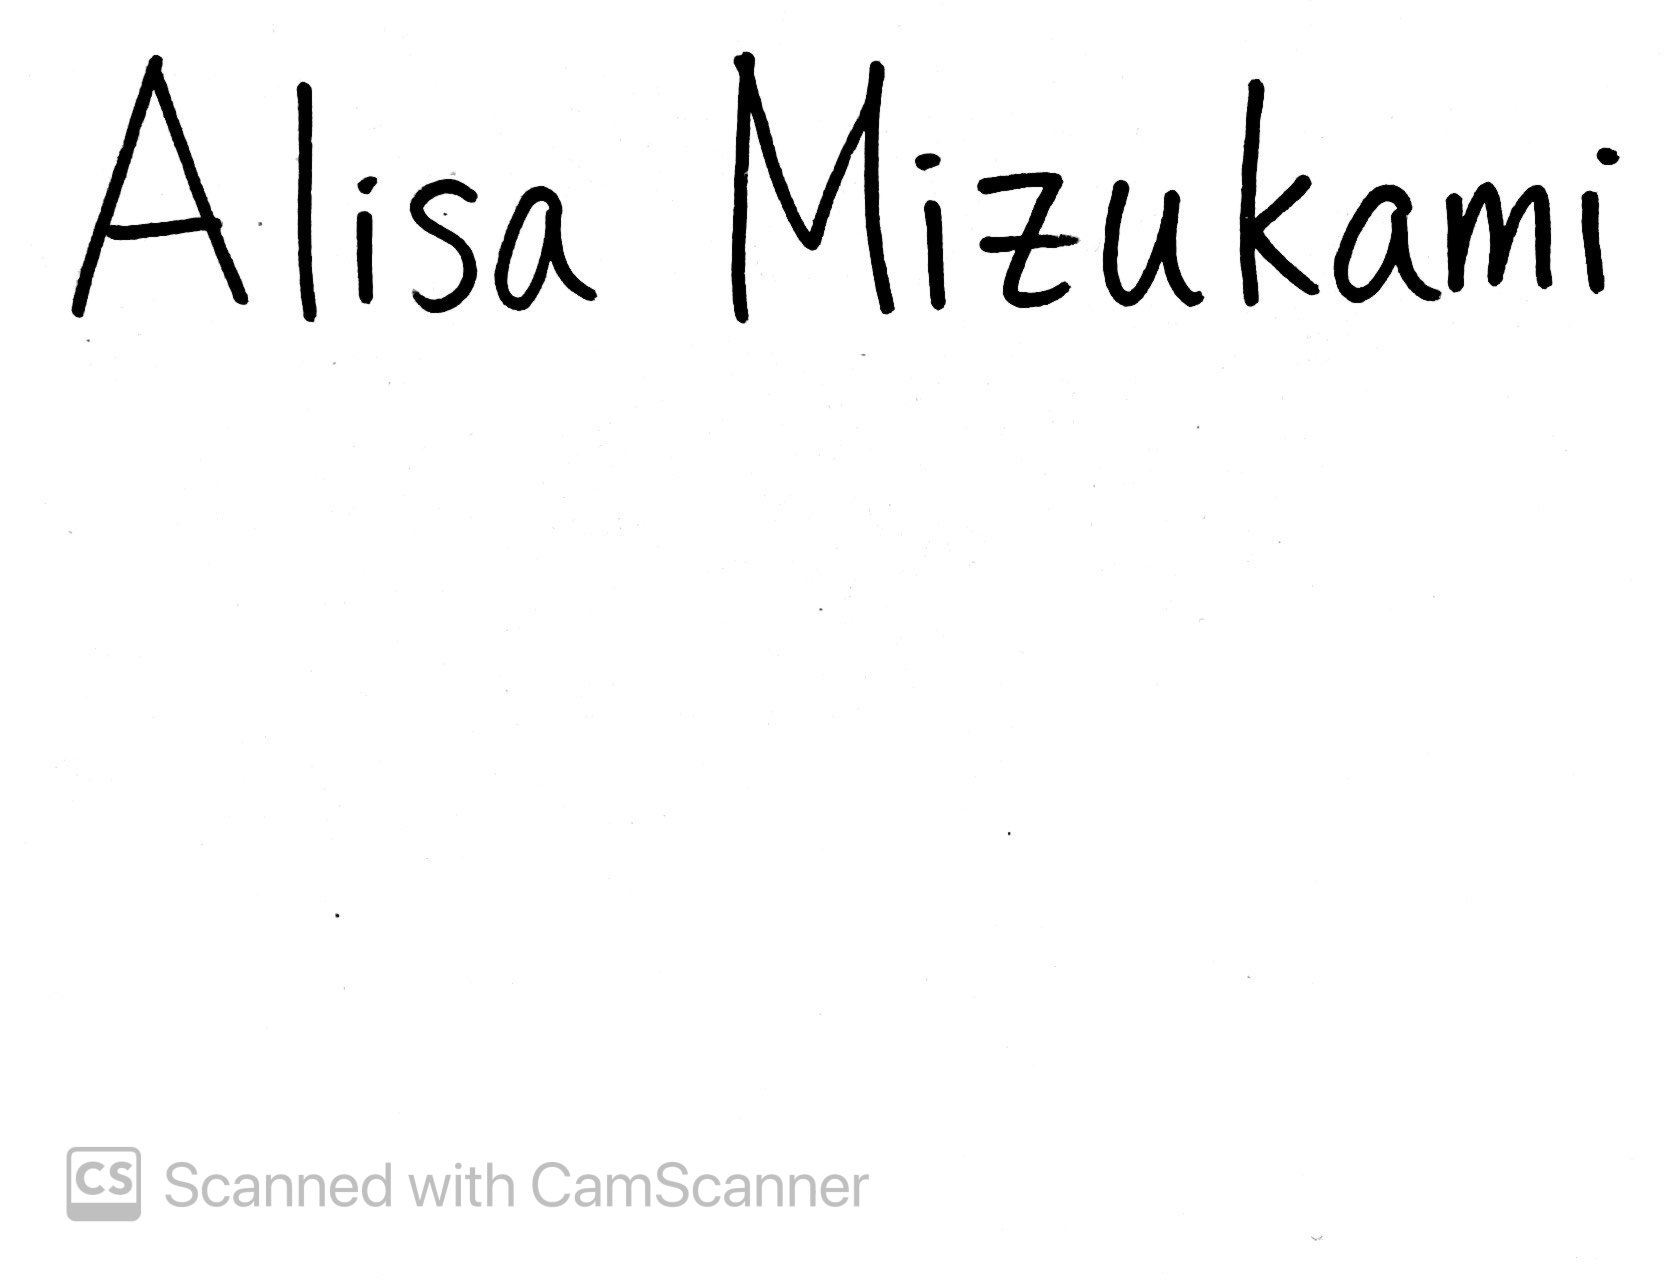 Alisa Mizukami
CS Scanned with CamScanner